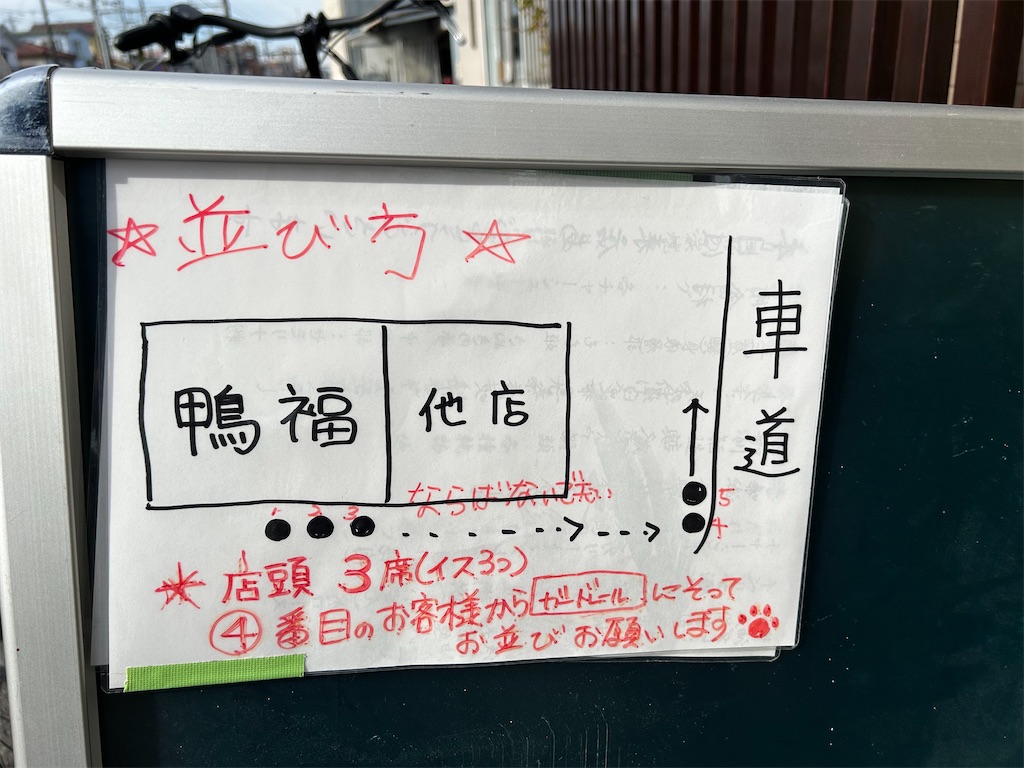 ☆並び方☆
鴨福
他店
車道
ならばないで下さい
1 2 3
5
4
＊店頭 3席(イス3コ)
④番目のお客様からガードレールにそって
お並びお願いします